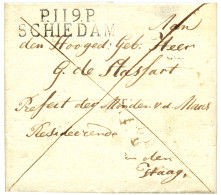 P.119.P.
SCHIEDAM
Aan
den Hooged: Geb: Heer
G. de Stassart
Prefect der Monden v. d. Maas
Resideerende
in den
Haag